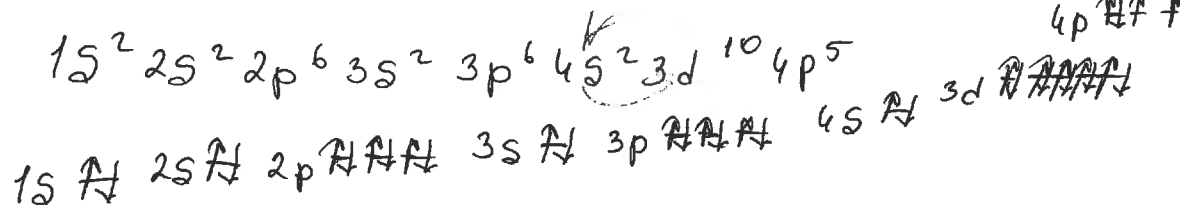 1s² 2s² 2p⁶ 3s² 3p⁶ 4s² 3d¹⁰ 4p⁵
1s ⇅ 2s ⇅ 2p ⇅⇅⇅ 3s ⇅ 3p ⇅⇅⇅ 4s ⇅ 3d ⇅⇅⇅⇅⇅
4p